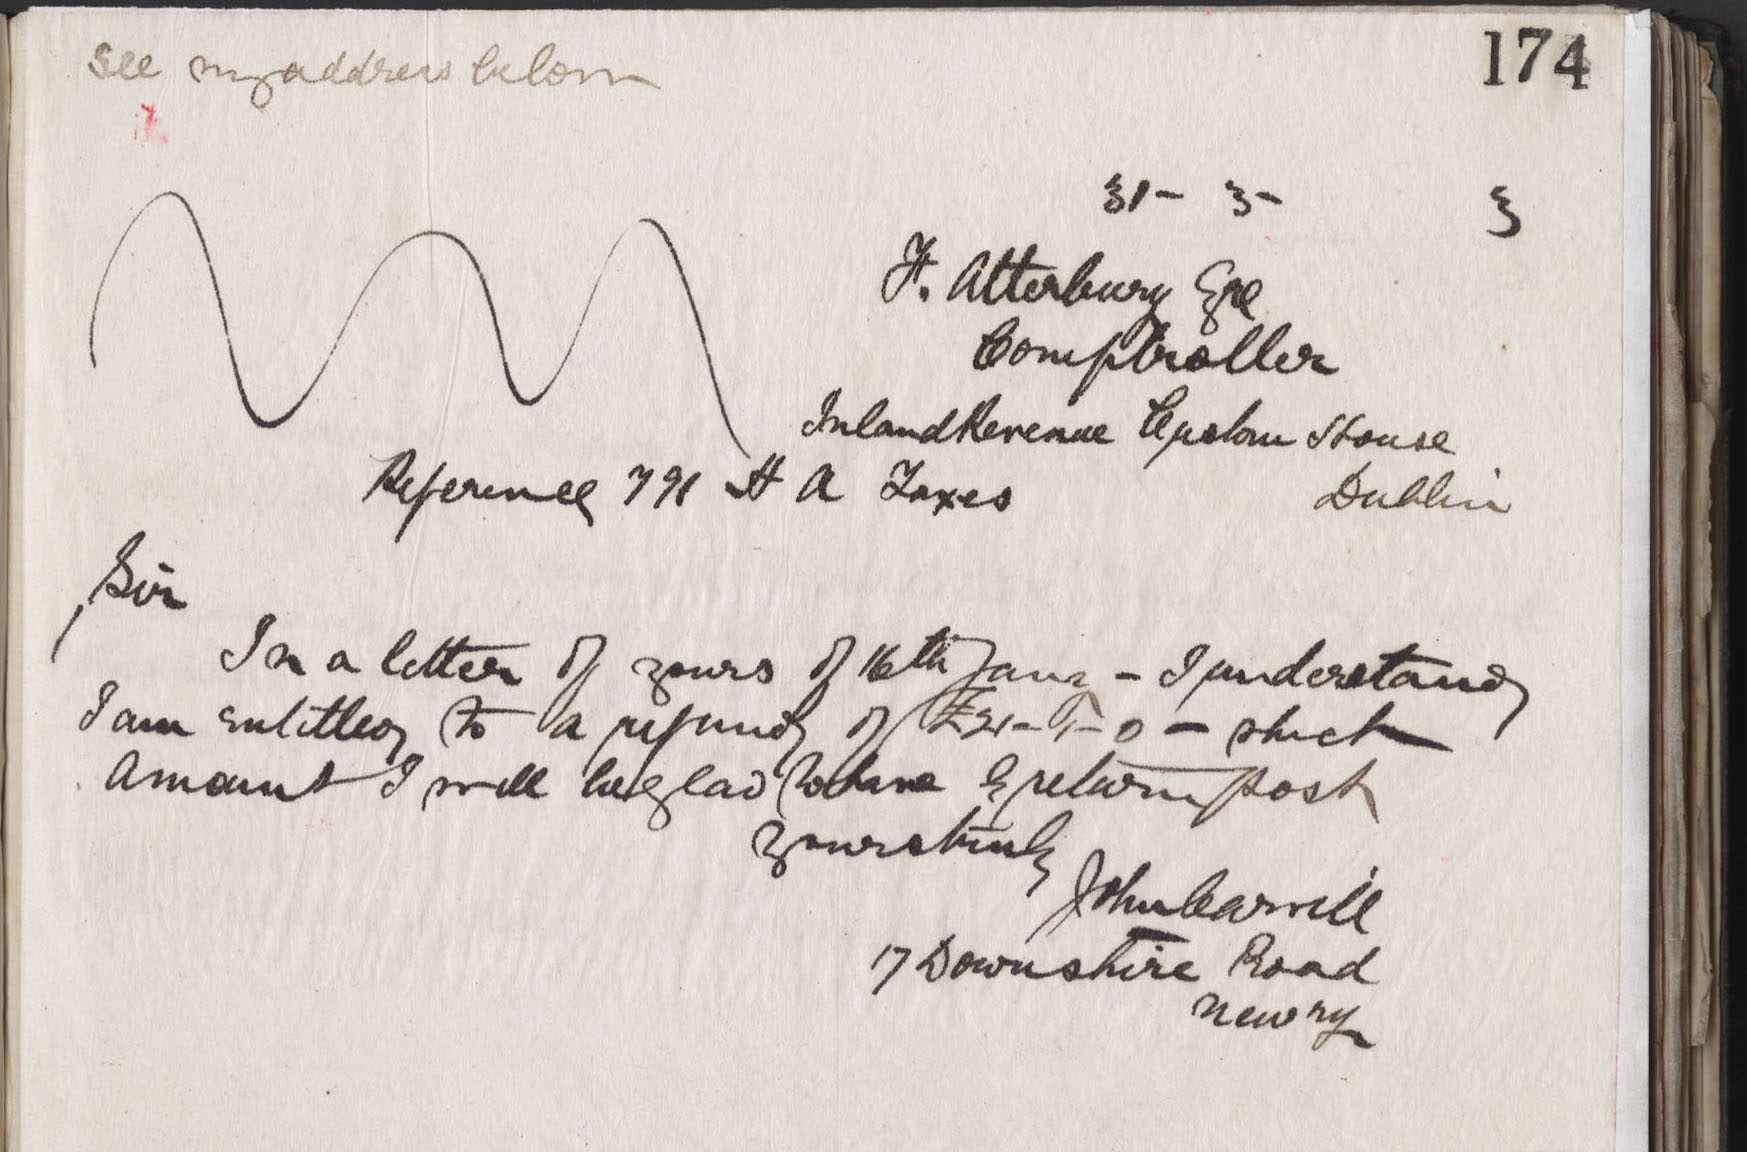 174
See my address below
31- 3- 3
F. Atterbury Esq
Comptroller
Inland Revenue Custom House
Dublin
Reference 791 H A Taxes
Sir
In a letter of yours of 16th Jany - I understand
I am entitled to a refund of - which
amount I will be glad to have by return post
Yours truly
John Carvill
17 Downshire Road
Newry